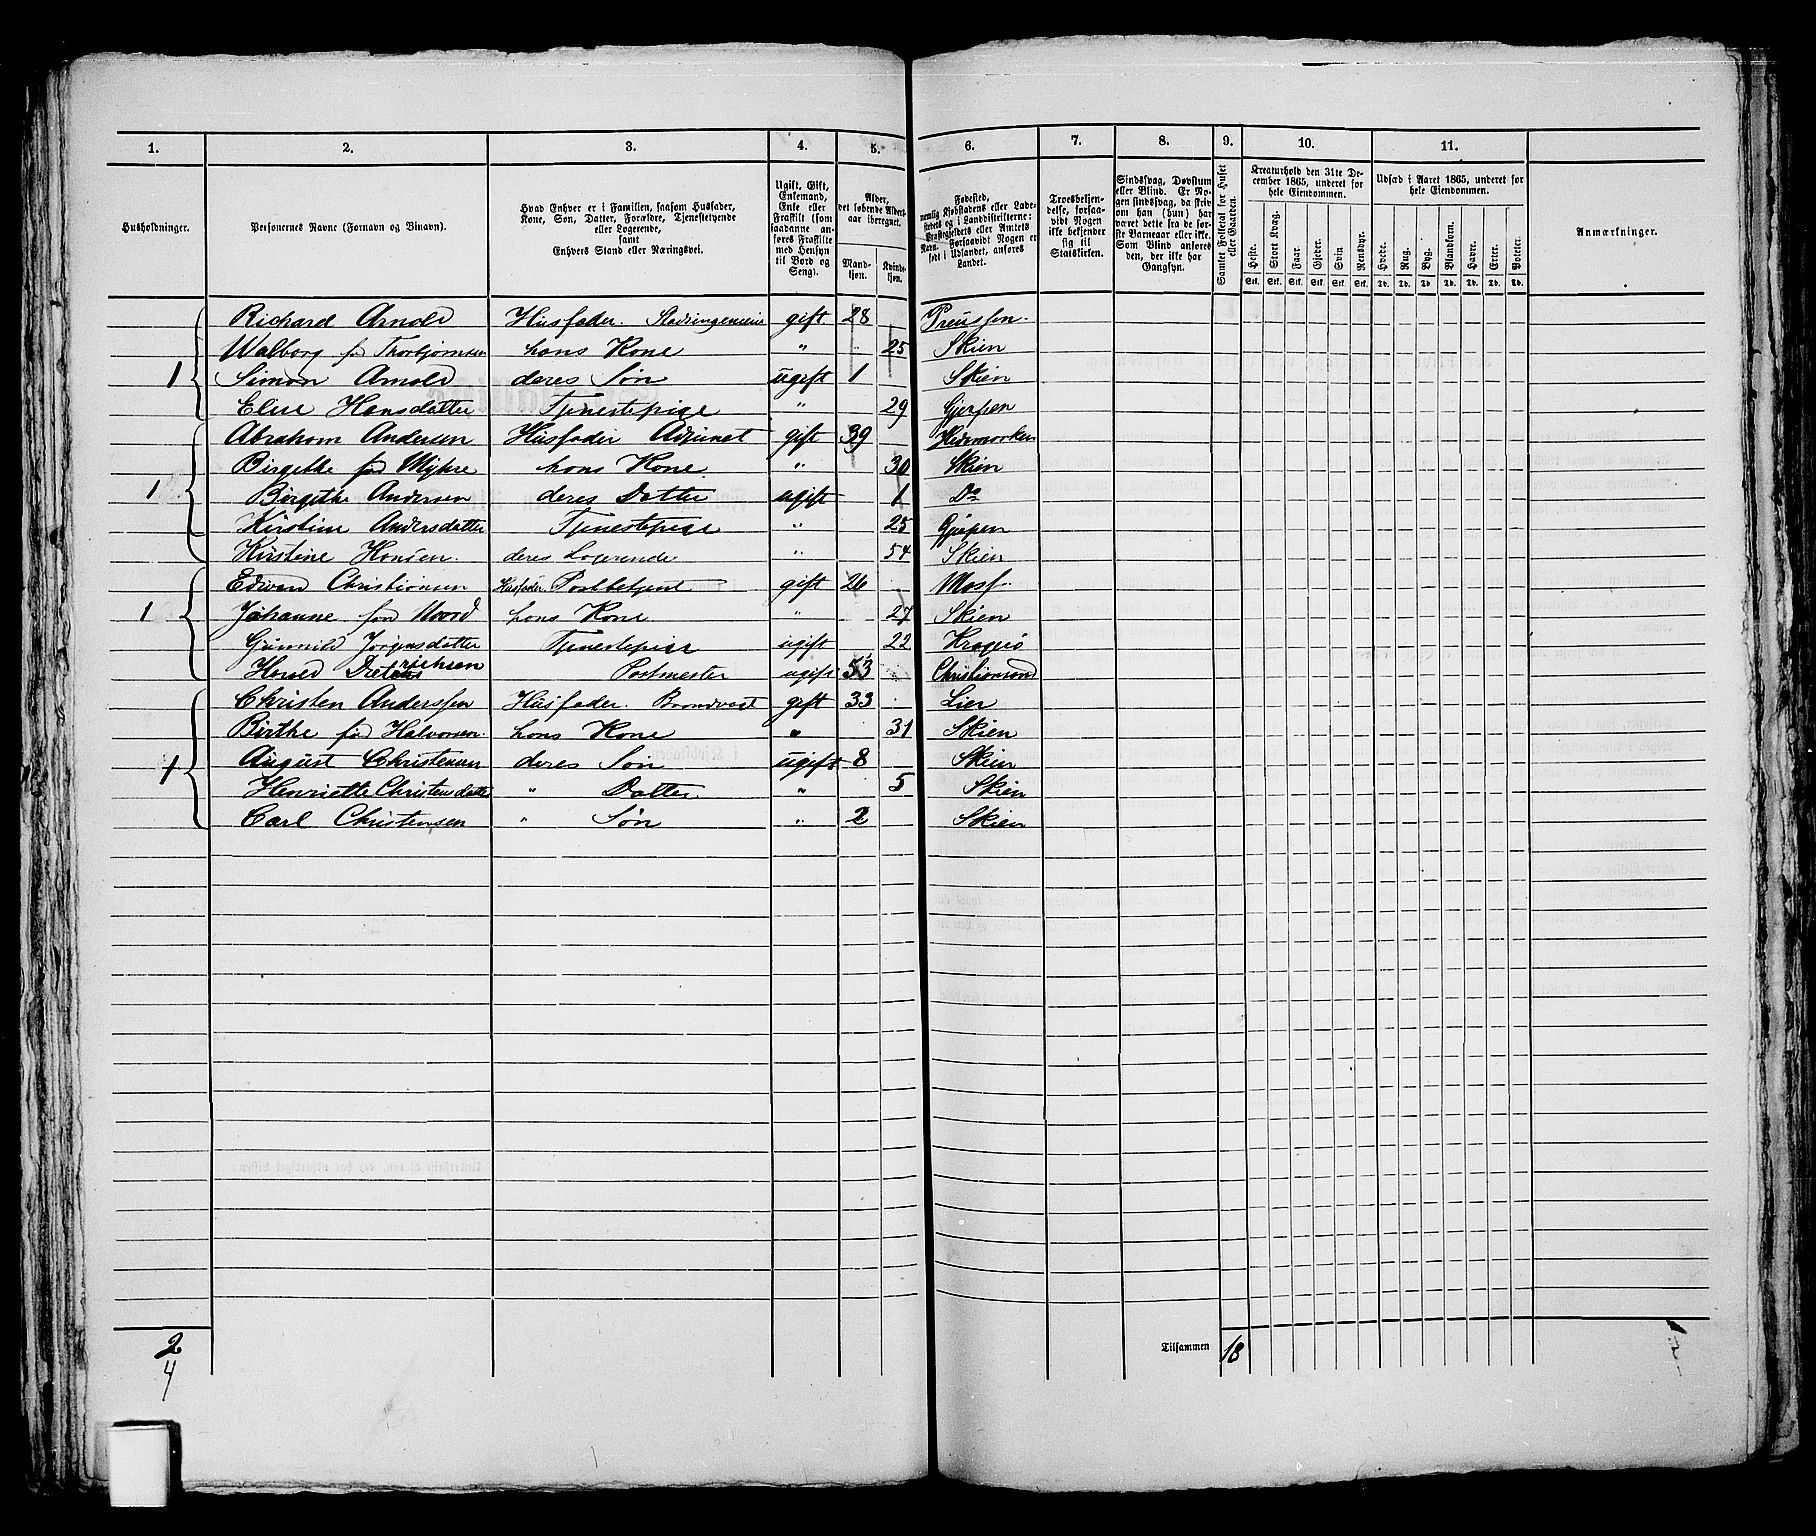 1. 2. 3. 4. 5. 6. 7. 8. 9. 10. 11.
Husholdninger.
Personernes Navne (Fornavn og Binavn).
Hvad Enhver er i Familien, saasom Husfader,
Kone, Søn, Datter, Forældre, Tjenestetyende
eller Logerende,
samt
Enhvers Stand eller Næringsvei.
Ugift, Gift,
Enkemand,
Enke eller
Fraskilt (som
saadanne an-
føres Fraskilte
med Hensyn
til Bord og
Seng).
Alder,
det løbende Alders-
aar iberegnet.
Mand-
kjøn.
Kvinde-
kjøn.
Fødested,
nemlig Kjøbstadens eller Lade-
stedets og i Landdistrikterne:
Præstegjeldets eller Amtets
Navn. Forsaavidt Nogen er
født i Udlandet, anføres
Landet.
Troesbekjen-
delse, forsaa-
vidt Nogen
ikke bekjender
sig til
Statskirken.
Sindssvag, Døvstum
eller Blind. Er No-
gen sindssvag, da skriv
om han (hun) har
været dette fra de før-
ste Barneaar eller ikke.
Som Blind anføres
den, der ikke har
Gangsyn.
Samlet Folketal for Huset
eller Gaarden.
Kreaturhold den 31te De-
cember 1865, underet for
hele Eiendommen.
Heste. Stort Kvæg. Faar. Gjeder. Svin Rensdyr.
Stk. Stk. Stk. Stk. Stk. Stk.
Udsæd i Aaret 1865, underet for
hele Eiendommen.
Hvede. Rug. Byg. Blandkorn. Havre. Erter. Poteter.
Td. Td. Td. Td. Td. Td. Td.
Anmærkninger.
Richard Arnold Husfader. Stadsingeniør gift 28 Preussen.
Walborg fød Thorbjørnsen hans Kone " 25 Skien
1 Simon Arnold deres Søn ugift 1 Skien
Elise Hansdatter Tjenestepige " 29 Gjerpen
Abraham Andersen Husfader Adjunct gift 39 Hedemarken
Birgethe fød Myhre hans Kone " 30 Skien
1 Birgethe Andersen deres Datter ugift 1 Do
Kirstine Andersdatter Tjenestepige " 25 Gjerpen
Kirstine Hansen. deres Logerende " 54 Skien
Edvard Christiansen Husfader Postbetjent gift 26 Moss.
1 Johanne fød Moord hans Kone " 27 Skien
Gunnild Jørgensdatter Tjenestepige ugift 22 Kragerø
Harald Dieterichsen Postmester ugift 53 Christiansand
Christen Anderssen Husfader Brandvagt gift 33 Lier
Birthe fød Halvorsen. hans Kone " 31 Skien
1 August Christensen deres Søn ugift 8 Skien
Henriette Christensdatter " Datter " 5 Skien
Carl Christensen " Søn " 2 Skien
2
4
Tilsammen 18